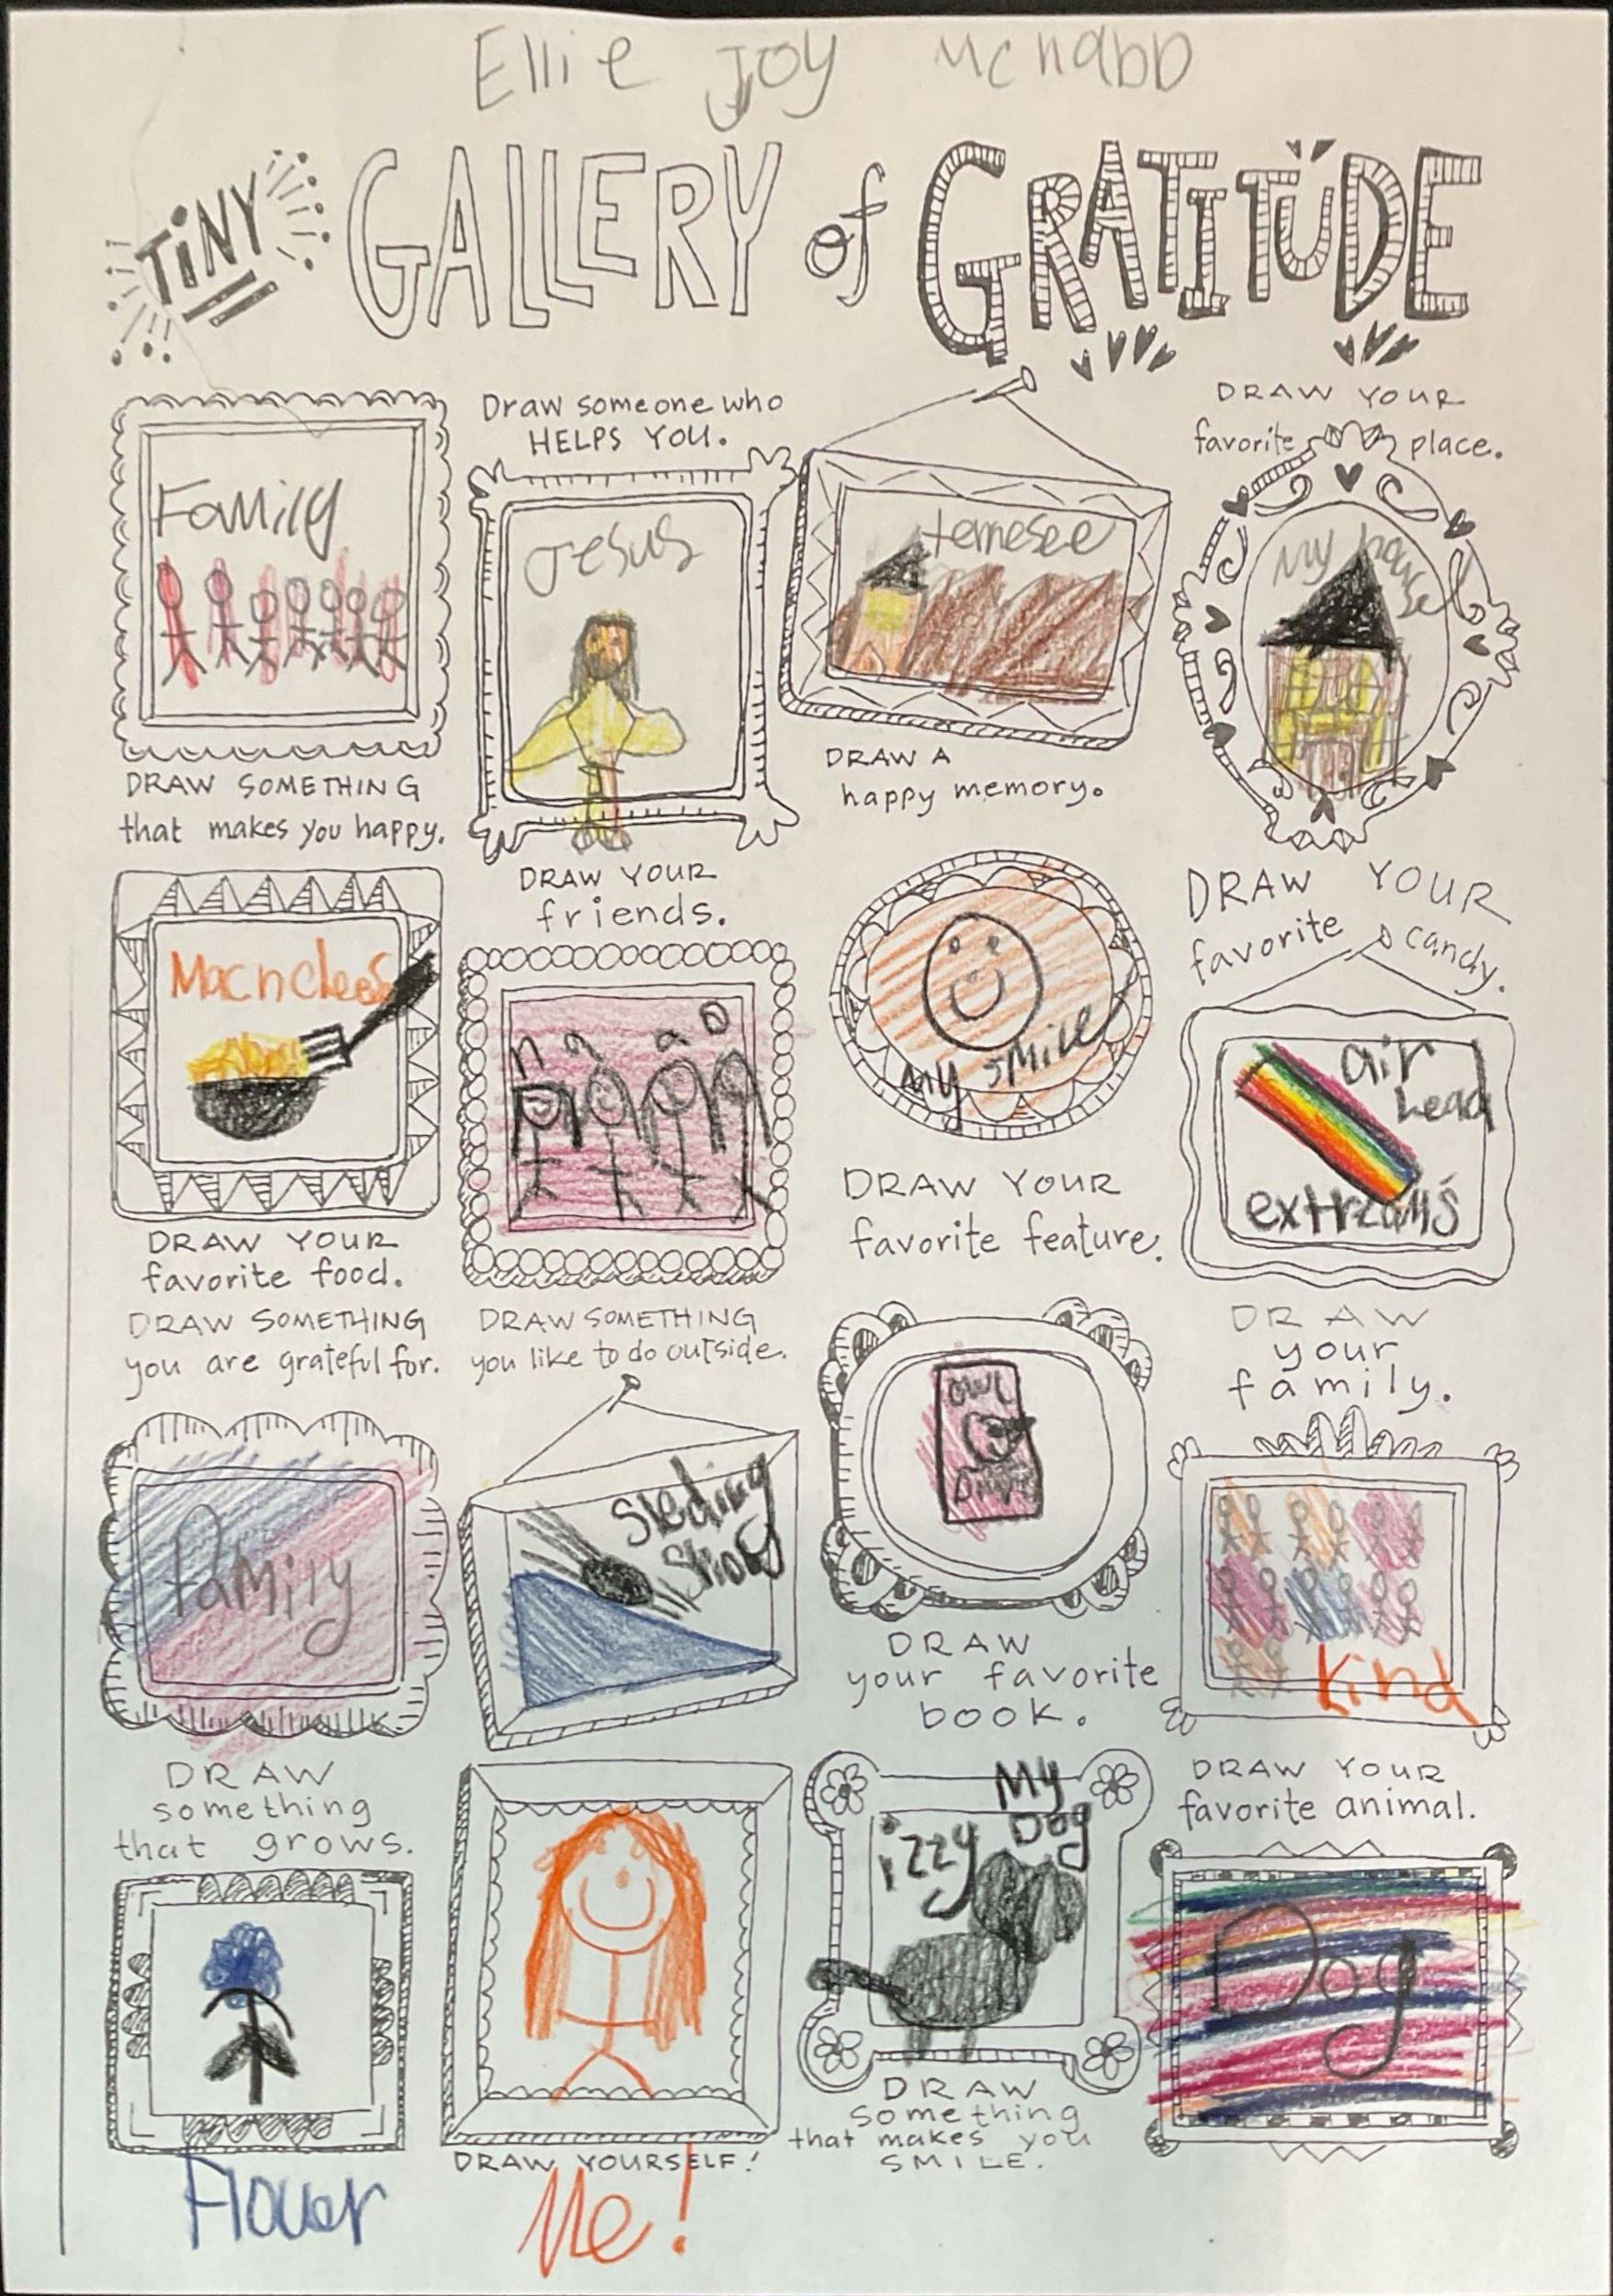 Ellie Joy McNabb
TiNY GALLERY of GRATITUDE
Family
DRAW SOMETHING
that makes you happy.
Draw someone who
HELPS YOU.
Jesus
tennesee
DRAW A
happy memory.
DRAW YOUR
favorite place.
My house
Mac n chees
DRAW YOUR
favorite food.
DRAW YOUR
friends.
n a a o
My smile
DRAW YOUR
favorite feature.
DRAW YOUR
favorite candy.
air
head
extreams
DRAW SOMETHING
you are grateful for.
family
DRAW SOMETHING
you like to do outside.
Sleding
owl
DRAW
your favorite
book.
DRAW
your
family.
kind
DRAW
something
that grows.
Flower
DRAW YOURSELF!
Me!
My
Dog
izzy
DRAW
something
that makes you
SMILE.
DRAW YOUR
favorite animal.
Dog